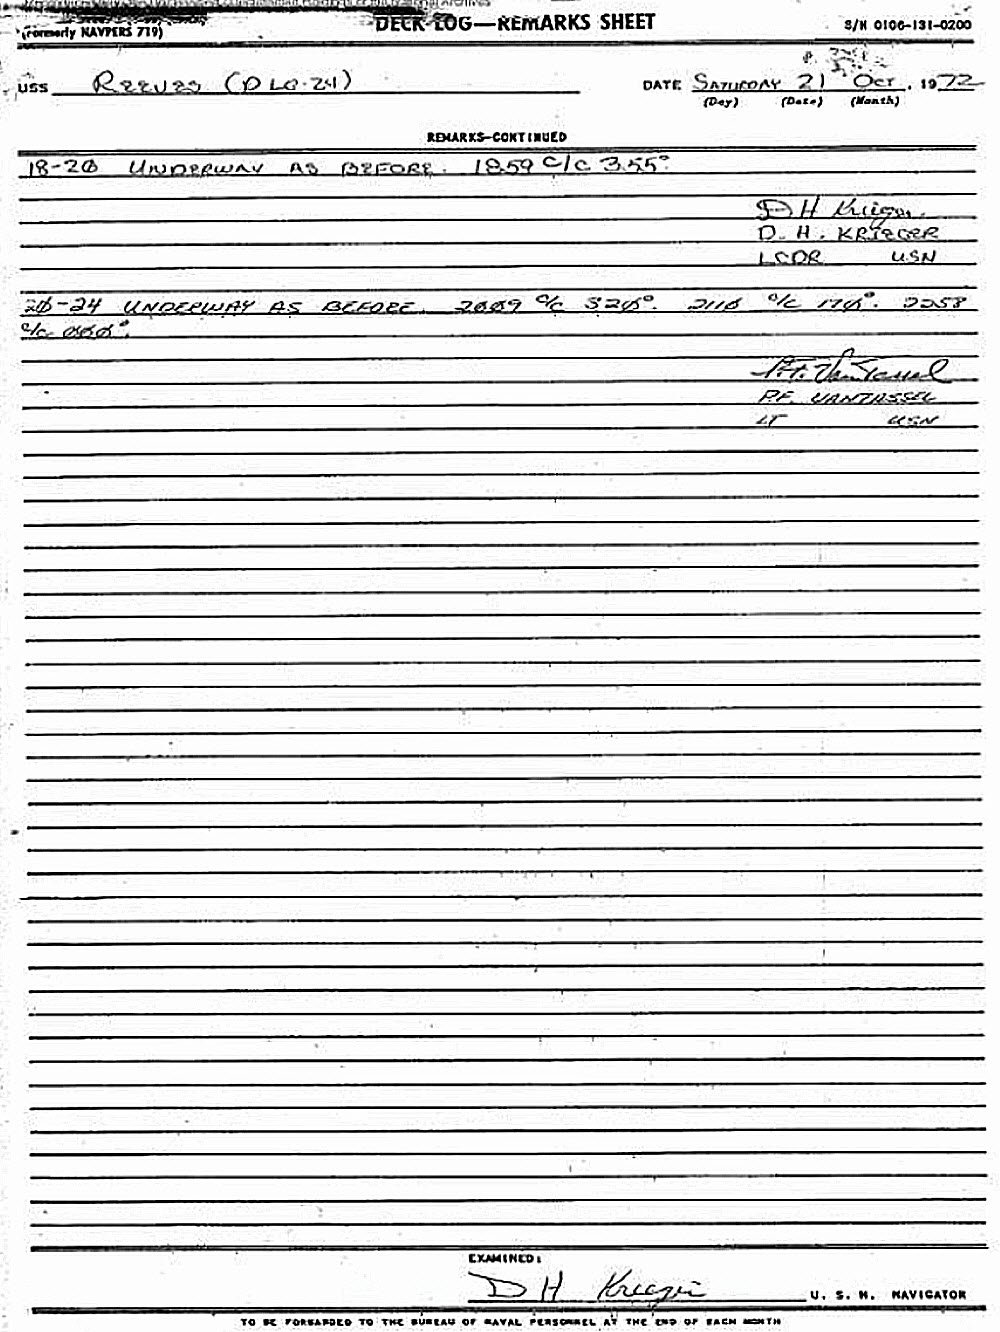 DECK LOG—REMARKS SHEET
(Formerly NAVPERS 719)
S/N 0106-131-0200
USS REEVES (DLG-24)
DATE SATURDAY 21 OCT, 1972
(Day) (Date) (Month)
REMARKS—CONTINUED
18-20 UNDERWAY AS BEFORE. 1859 C/C 355°
D H Krieger
D. H. KRIEGER
LCDR USN
20-24 UNDERWAY AS BEFORE. 2009 C/C 320°. 2110 C/C 170°. 2258
C/C 000°.
P.F. VanTassel
P.F. VANTASSEL
LT USN
EXAMINED:
D H Krieger
U. S. N. NAVIGATOR
TO BE FORWARDED TO THE BUREAU OF NAVAL PERSONNEL AT THE END OF EACH MONTH